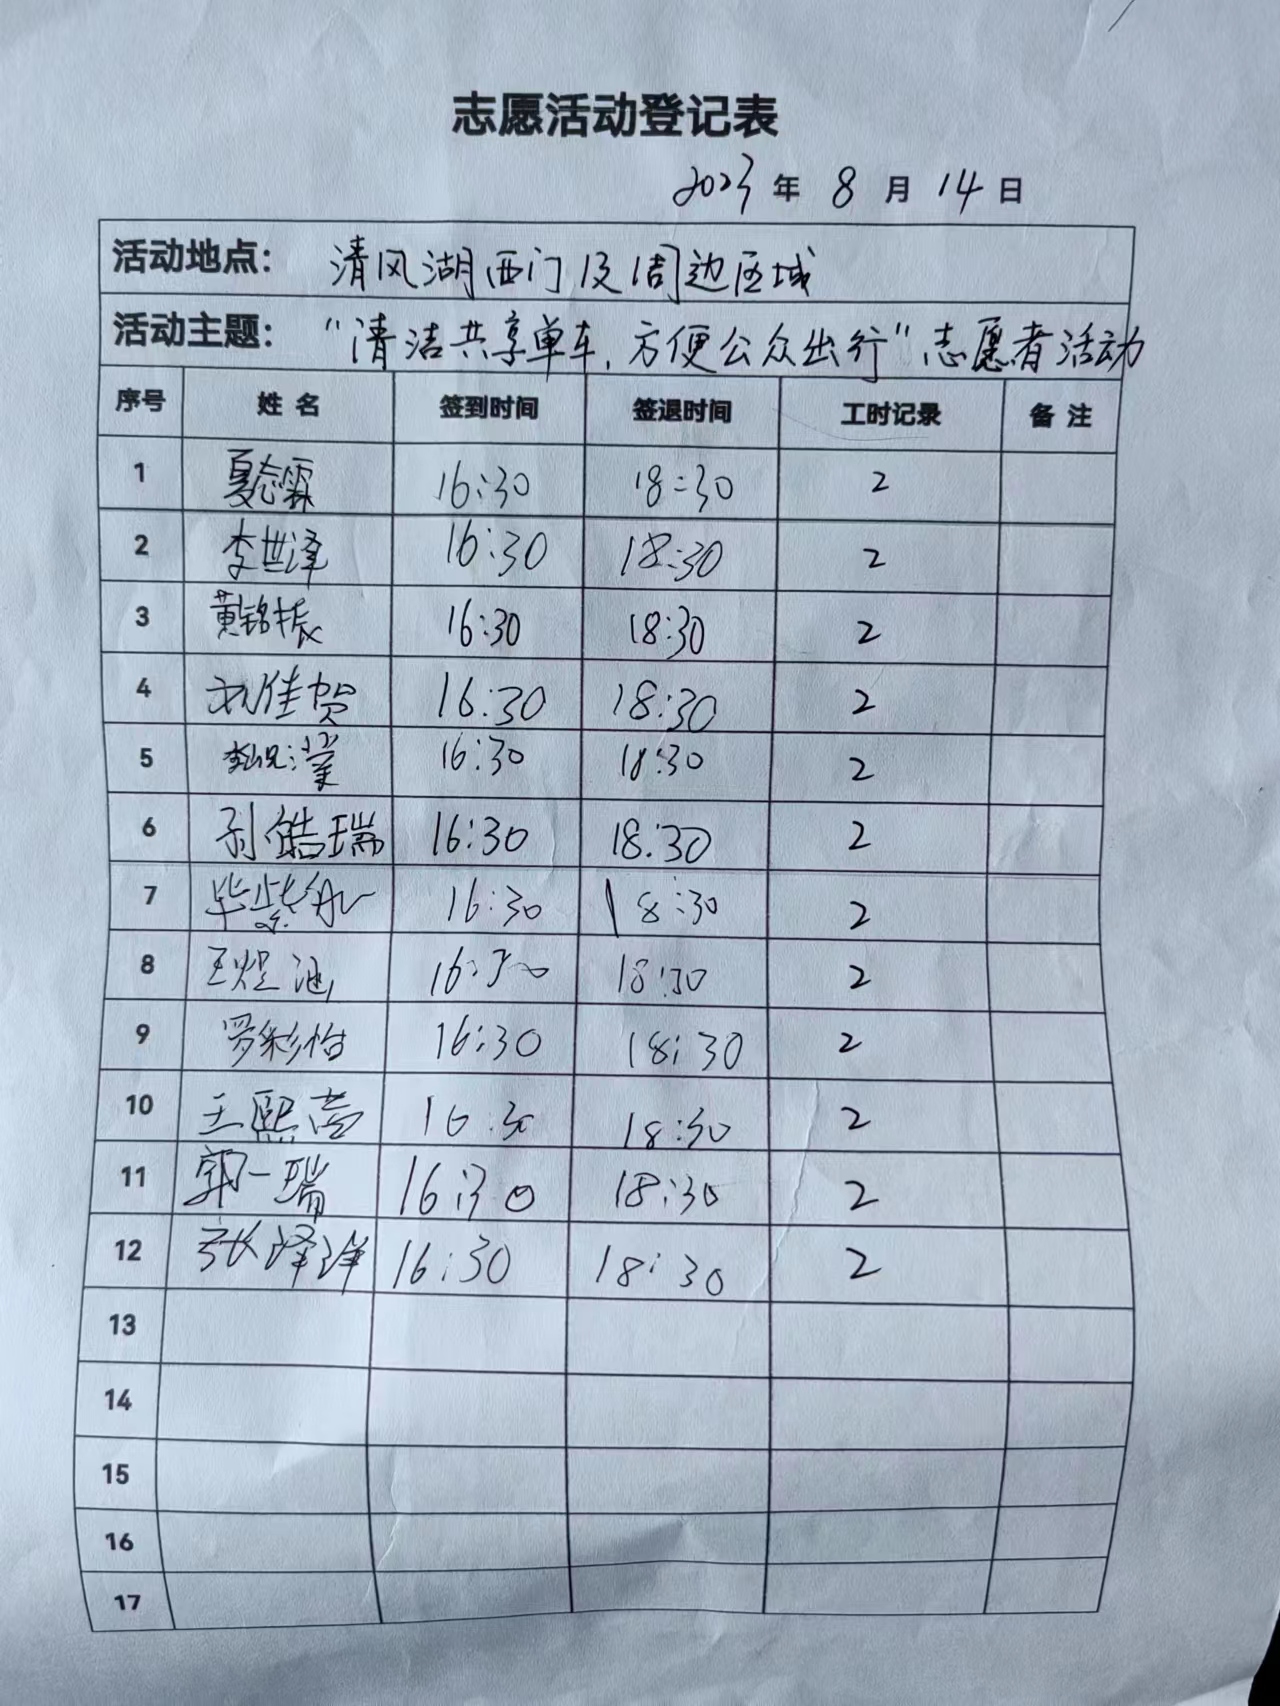 志愿活动登记表
2023 年 8 月 14 日
活动地点： 清风湖西门及周边区域
活动主题： “清洁共享单车，方便公众出行”志愿者活动
序号 姓 名 签到时间 签退时间 工时记录 备 注
1 16:30 18:30 2
2 李世泽 16:30 18:30 2
3 黄铭振 16:30 18:30 2
4 刘佳贺 16:30 18:30 2
5 16:30 18:30 2
6 16:30 18:30 2
7 16:30 18:30 2
8 王煜涵 16:30 18:30 2
9 罗彩怡 16:30 18:30 2
10 16:30 18:30 2
11 郭一瑞 16:30 18:30 2
12 16:30 18:30 2
13
14
15
16
17